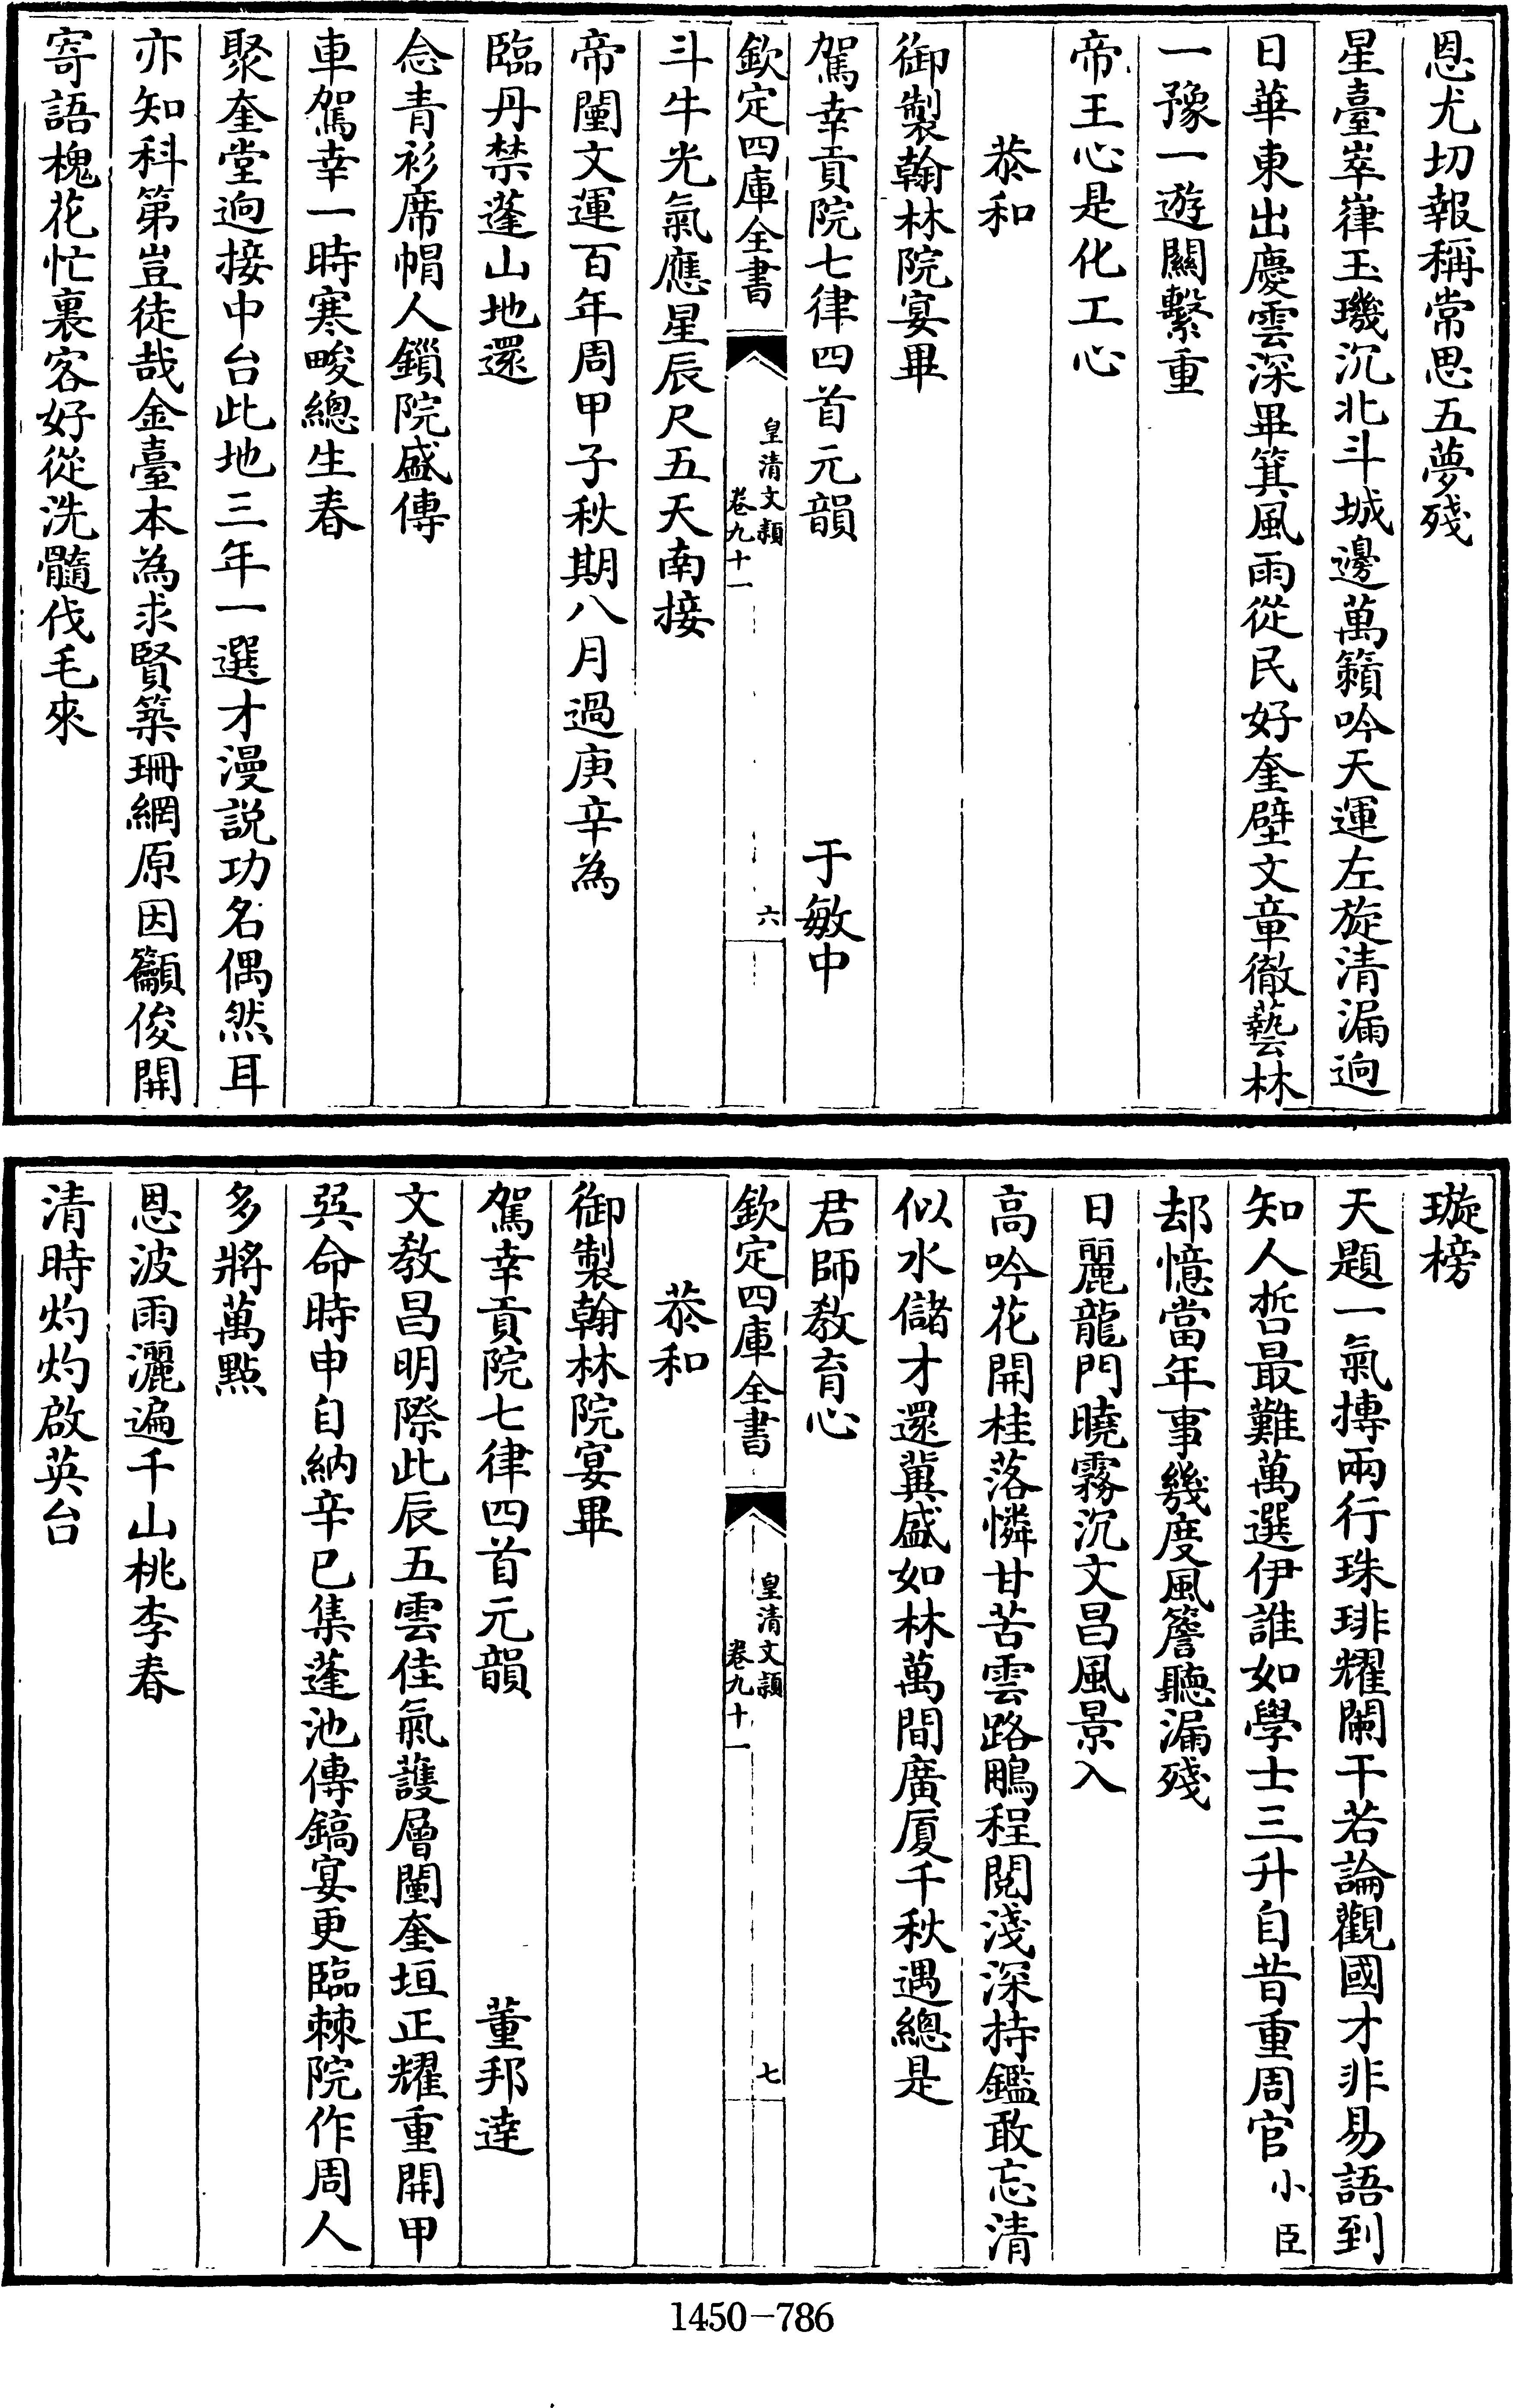 恩尤切報稱常思五夢殘
星臺崒嵂玉璣沉北斗城邊萬籟吟天運左旋清漏逈
日華東出慶雲深畢箕風雨從民好奎壁文章徹藝林
一豫一遊關繫重
帝王心是化工心
恭和
御製翰林院宴畢
駕幸貢院七律四首元韻 于敏中
欽定四庫全書 皇清文穎 卷九十一 六
斗牛光氣應星辰尺五天南接
帝闉文運百年周甲子秋期八月過庚辛為
臨丹禁蓬山地還
念青衫席帽人鎖院盛傳
車駕幸一時寒畯總生春
聚奎堂逈接中台此地三年一選才漫説功名偶然耳
亦知科第豈徒哉金臺本為求賢築珊網原因籲俊開
寄語槐花忙裏客好從洗髓伐毛來
璇榜
天題一氣摶兩行珠琲耀闌干若論觀國才非易語到
知人哲最難萬選伊誰如學士三升自昔重周官小臣
却憶當年事幾度風簷聽漏殘
日麗龍門曉霧沉文昌風景入
高吟花開桂落憐甘苦雲路鵬程閱淺深持鑑敢忘清
似水儲才還冀盛如林萬間廣厦千秋遇總是
君師教育心
欽定四庫全書 皇清文穎 卷九十一 七
恭和
御製翰林院宴畢
駕幸貢院七律四首元韻 董邦達
文教昌明際此辰五雲佳氣護層闉奎垣正耀重開甲
巽命時申自納辛已集蓬池傳鎬宴更臨棘院作周人
多將萬點
恩波雨灑遍千山桃李春
清時灼灼啟英台
1450-786